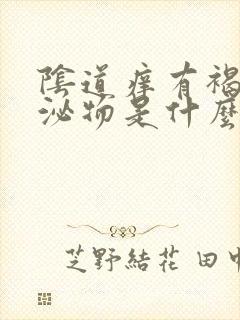 陰道痒有褐
泌物是什麼
芝野結花 田中